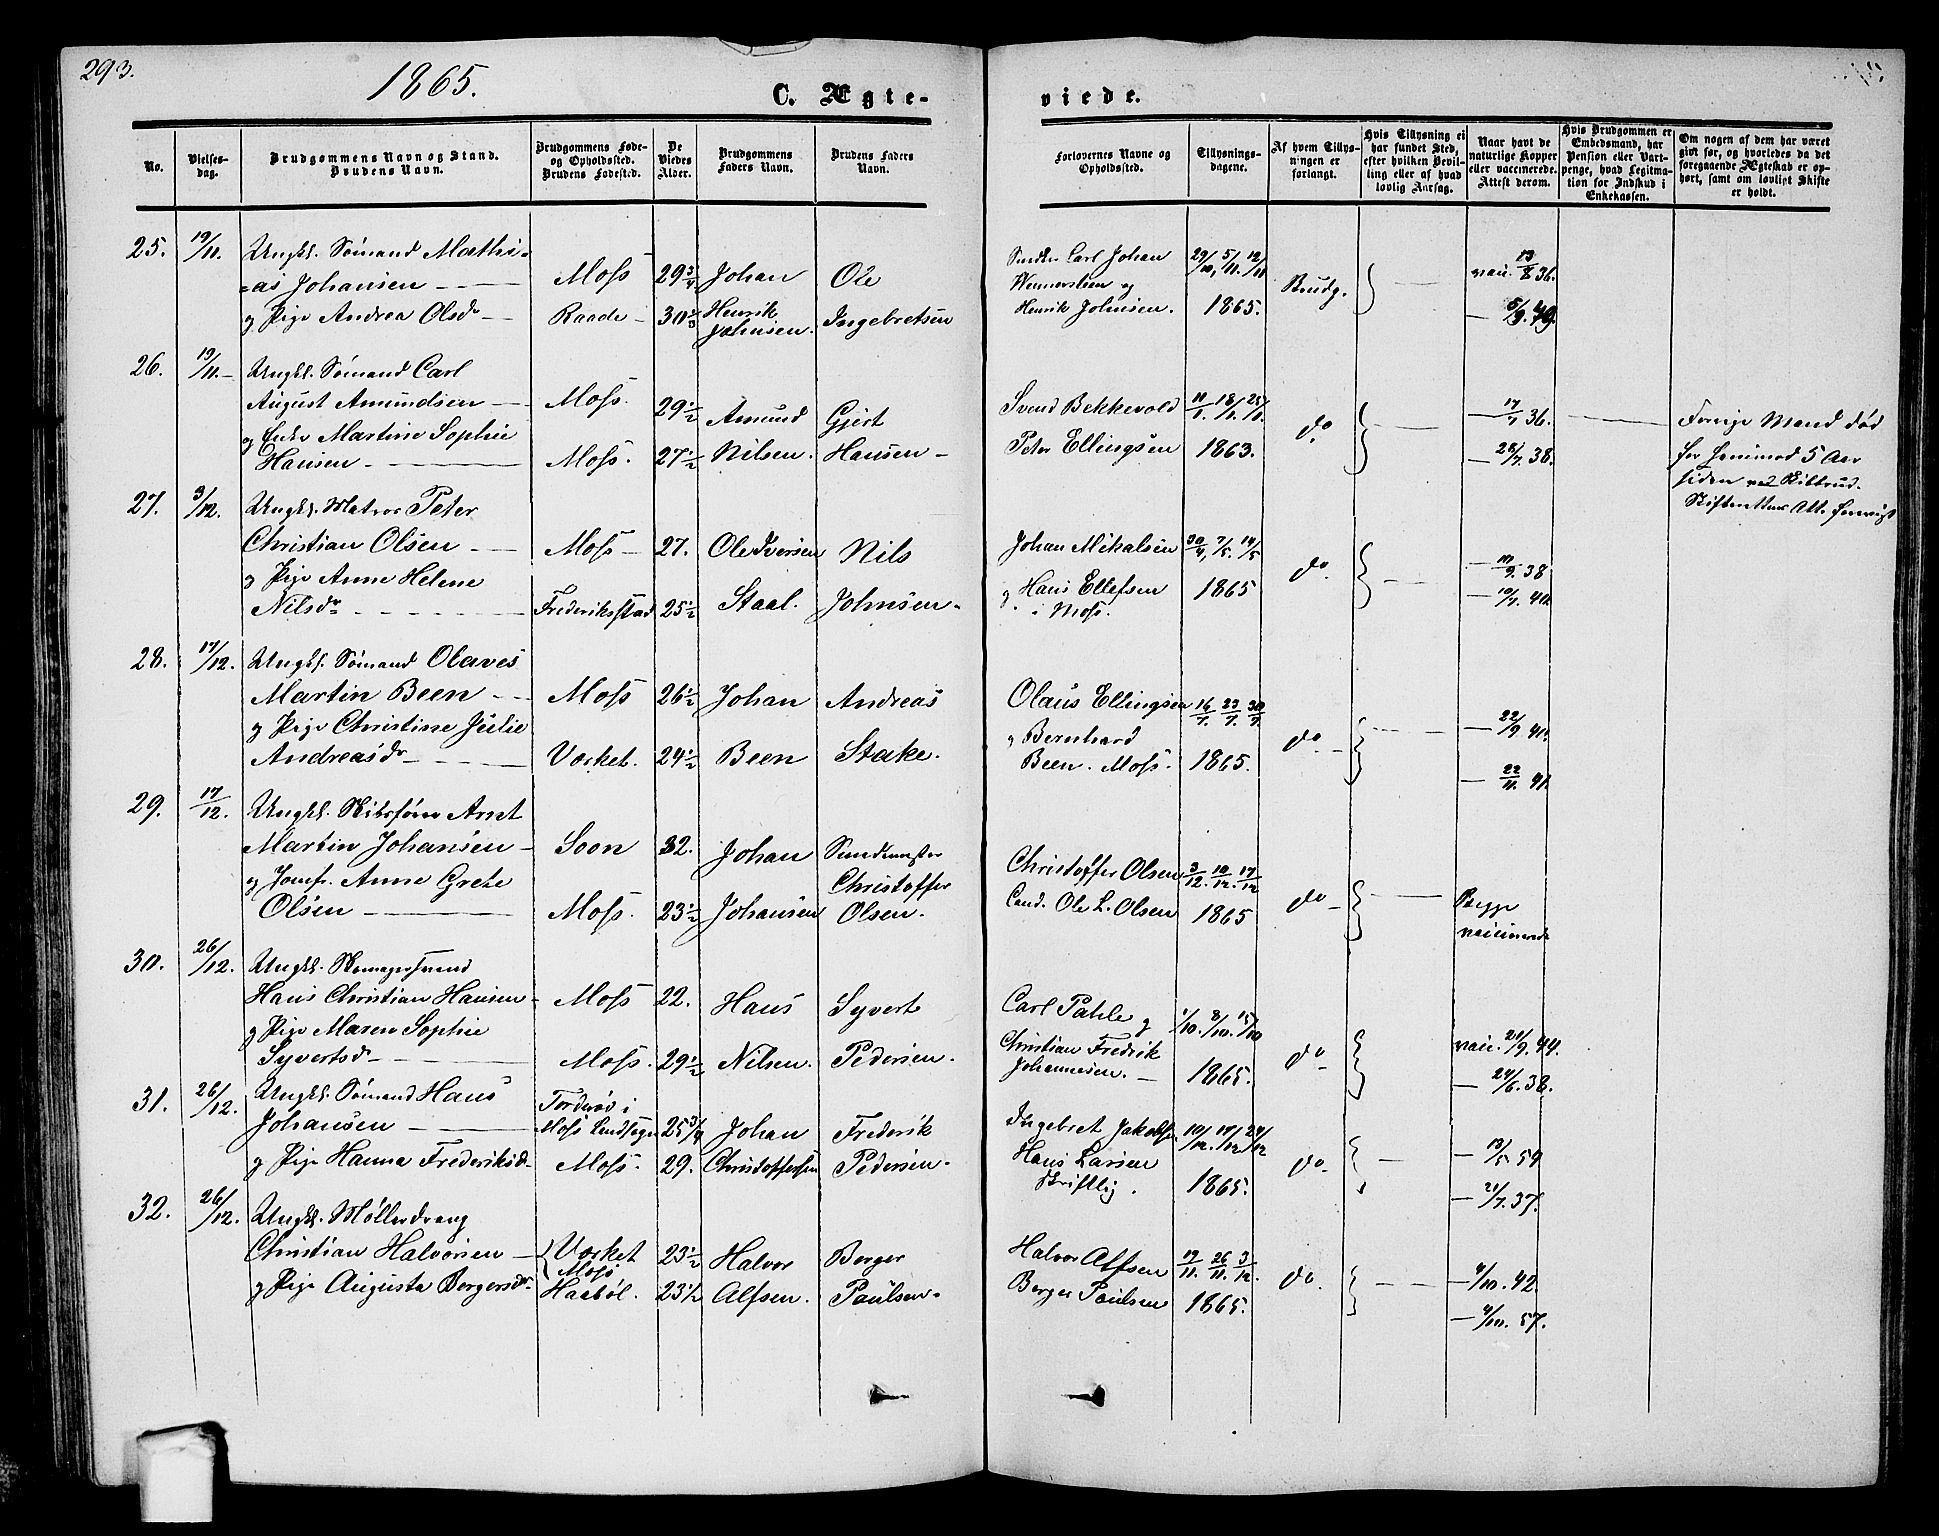 293.
1865.
C. Ægte-
viede.
No.
Vielses-
dag.
Brudgommens Navn og Stand.
Brudens Navn.
Brudgommens Føde-
og Opholdssted.
Brudens Fødested.
De
Viedes
Alder.
Brudgommens
Faders Navn.
Brudens Faders
Navn.
Forlovernes Navne og
Opholdssted.
Tillysnings-
dagene.
Af hvem Tillys-
ningen er
forlangt.
Hvis Tillysning ei
har fundet Sted,
efter hvilken Bevil-
ling eller af hvad
lovlig Aarsag.
Naar havt de
naturlige Kopper
eller vaccinerede.
Attest derom.
Hvis Brudgommen er
Embedsmand, har
Pension eller Vart-
penge, hvad Legitima-
tion for Indskud i
Enkekassen.
Om nogen af dem har været
gift før, og hvorledes da det
foregaaende Ægteskab er op-
hørt, samt om lovligt Skifte
er holdt.
25. 19/11. Ungkl. Sømand Mathi-
as Johansen Moss 29 3/4 Johan Ole
og Pige Andrea Olsdr Raade 30 2/3 Henrik Johnsen. Ingebretsen
Carl Johan
Wennersteen og
Henrik Johnsen.
29/10, 5/11. 12/11
1865.
Brudg.
vacc. 13/8 36.
26. 19/11. Ungkl. Sømand Carl
August Amundsen Moss. 29 1/2 Amund Gjert
og Enke Martine Sophie
Hansen Moss. 27 1/2 Nilsen. Hansen
Svend Bekkevold
Peter Ellingsen
1863.
do
17/7 36.
38.
Forrige Mand død
for henimod 5 Aar
siden
27. 3/12. Ungkl. Matros Peter
Christian Olsen Moss 27. Ole Iversen Nils
og Pige Anne Helene
Nilsdr Frederiksstad 25 1/2 Staal. Johnsen
Johan Mikalsen
og Hans Ellefsen
i Moss.
30/4, 7/5. 14/5
1865
do
10/9. 38
10/7. 40.
28. 17/12. Ungkl. Sømand Olaves
Martin Been Moss 26 1/2 Johan Andreas
og Pige Christine Julie
Andreasdr Værket. 24 1/2 Been Stake.
Olaus Ellingsen
og Bernhard
Been. Moss.
16/7. 23/7. 30/7
1865.
do
22/9 40.
22/11. 41.
29. 17/12. Ungkl. Skibsfører Arnt
Martin Johansen Soon 32. Johan
og Jomfr. Anne Grete Christoffer
Olsen Moss. 23 1/2 Johansen Olsen.
Christoffer Olsen
Cand. Ole L. Olsen
3/12. 10/12. 17/12
1865
do
Begge
vaccinerede
30. 26/12. Ungkl. Skomagersvend
Hans Christian Hansen Moss 22. Hans Syvert
og Pige Maren Sophie
Syvertsdr Moss. 29 1/2 Nilsen. Pedersen.
Carl Pahle og
Christian Fredrik
Johannesen.
1/10. 8/10. 15/10
1865.
do
vacc. 21/9. 44.
24/6. 38.
31. 26/12. Ungkl. Sømand Hans
Johansen Torderød i
Moss Landsogn 25 3/4 Johan Frederik
og Pige Hanna Frederiksdr Moss. 29. Christoffersen Pedersen.
Ingebret Jakobsen
Hans Larsen
Skriftlig.
10/12. 17/12 24/12
1865.
do
13/5. 59
21/7. 37.
32. 26/12. Ungkl. Møllerdreng
Christian Halvorsen Værket
Moss 23 1/2 Halvor Berger
og Pige Augusta Bergersdr Haabøl. 23 1/2 Alfsen. Paulsen.
Halvor Alfsen
Berger Paulsen
19/11. 26/11. 3/12.
1865.
do.
4/10. 42.
4/10. 57.